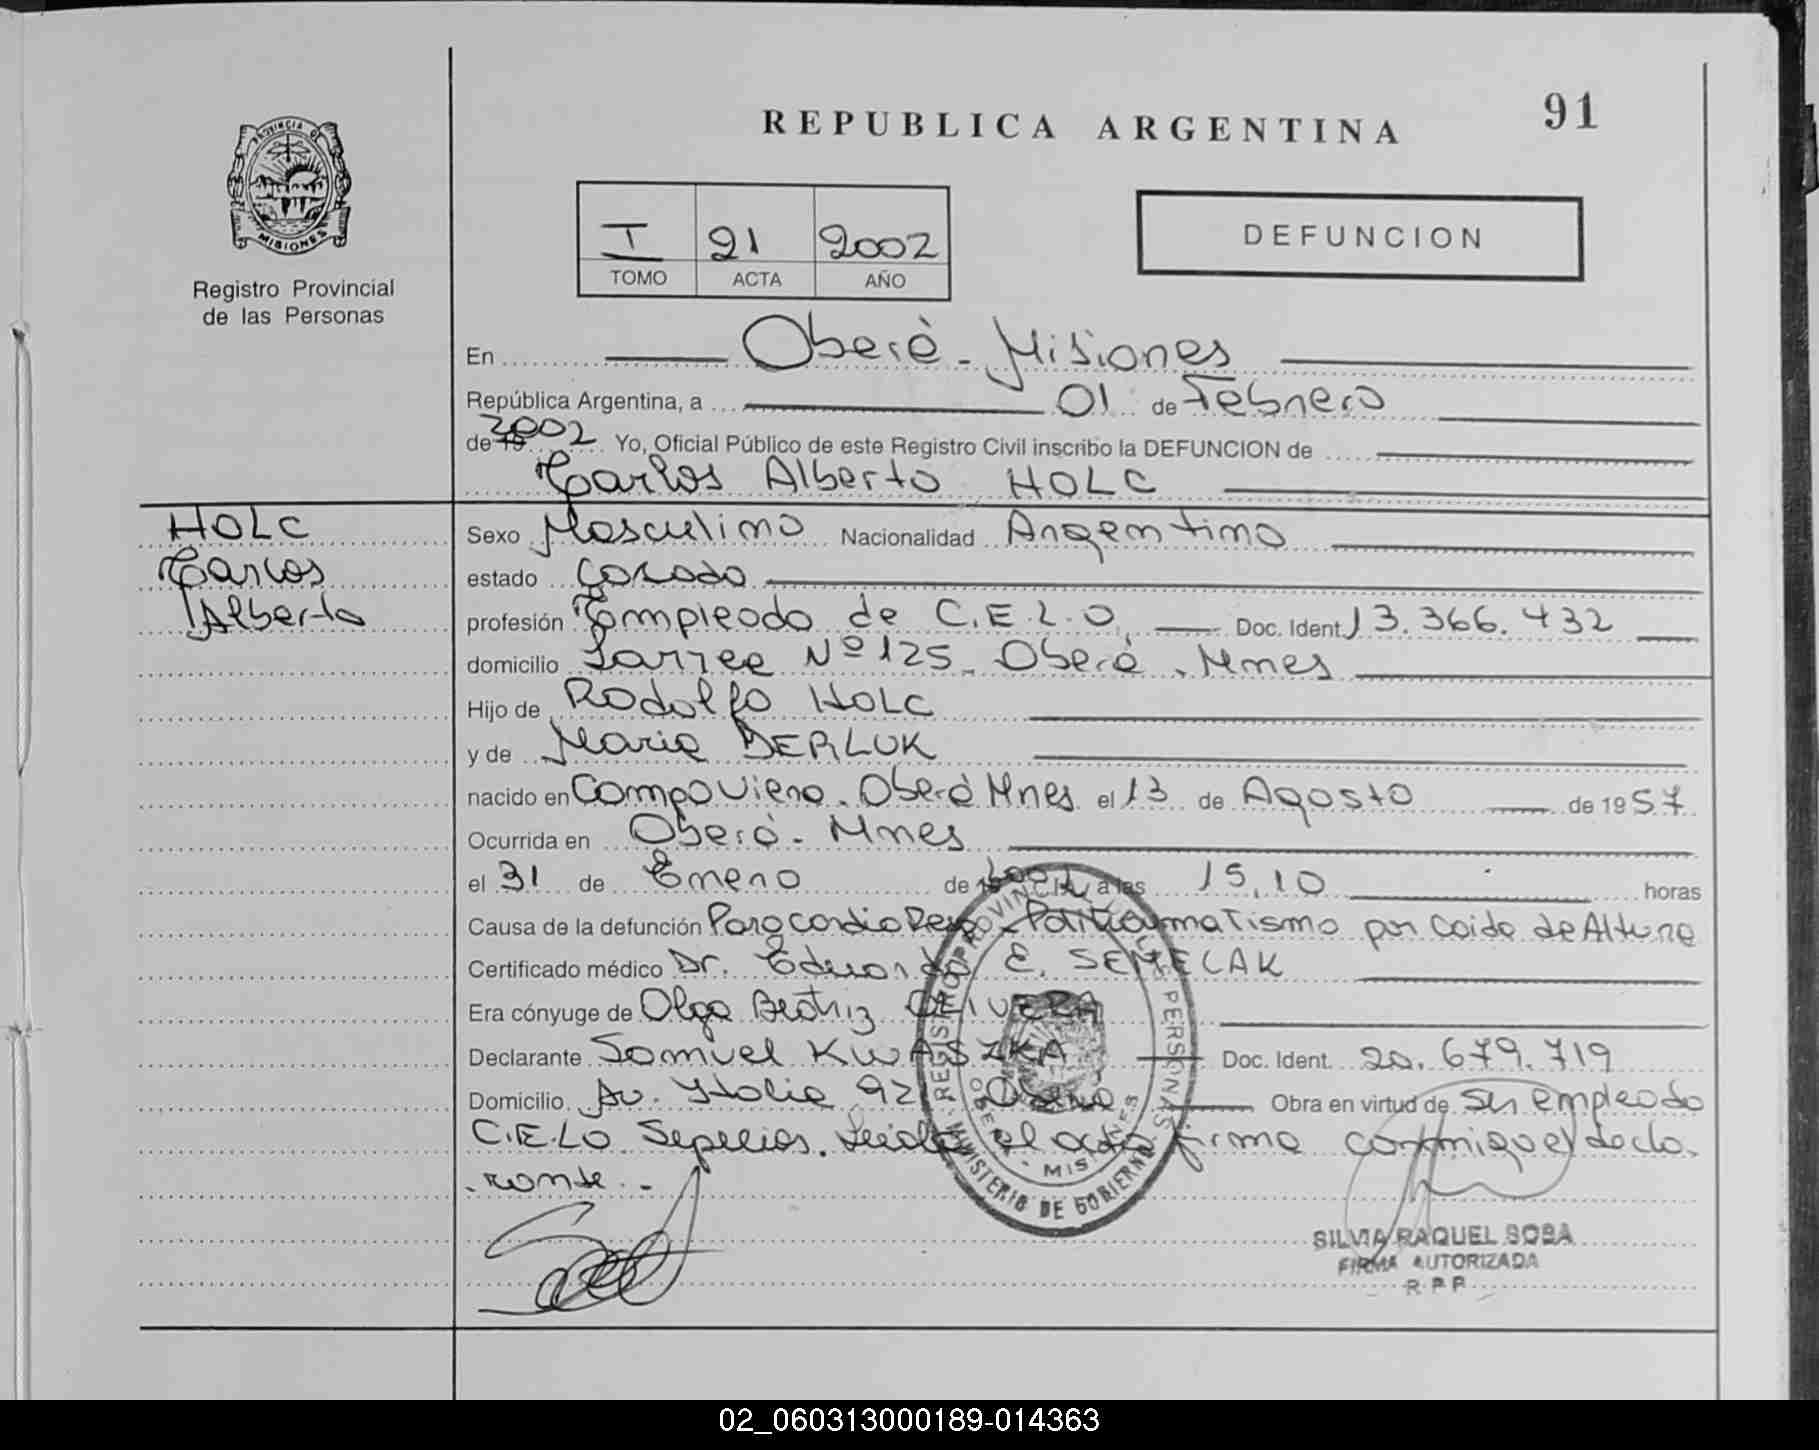 REPUBLICA ARGENTINA
91
PROVINCIA DE
MISIONES
Registro Provincial
de las Personas
I 21 2002
TOMO ACTA AÑO
DEFUNCION
En Oberá - Misiones
República Argentina, a 01 de Febrero
de 19 2002 Yo, Oficial Público de este Registro Civil inscribo la DEFUNCION de
Carlos Alberto HOLC
HOLC
Carlos
Alberto
Sexo Masculino Nacionalidad Argentino
estado Casado
profesión Empleado de C.E.L.O. Doc. Ident. 13.366.432
domicilio Nº 125 - Oberá - Mnes
Hijo de Rodolfo HOLC
y de Maria DERLUK
nacido en Campo Viera - Oberá Mnes el 13 de Agosto de 1957
Ocurrida en Oberá - Mnes
el 31 de Enero de 19 2002 a las 15,10 horas
Causa de la defunción Paro cardio Resp - Politraumatismo por Caida de Altura
Certificado médico Dr. Eduardo E. SEMECAK
Era cónyuge de Olga Beatriz OLIVERA
Declarante Samuel KWASZKA Doc. Ident. 20.679.719
Domicilio Av. Italia 92 Oberá Obra en virtud de ser empleado
C.E.L.O Sepelios. Leida el acta firma conmigo el decla-
-rante.-
REGISTRO PROVINCIAL DE LAS PERSONAS
OBERA - MISIONES
MINISTERIO DE GOBIERNO
SILVIA RAQUEL SOSA
FIRMA AUTORIZADA
R.P.P.
02_060313000189-014363